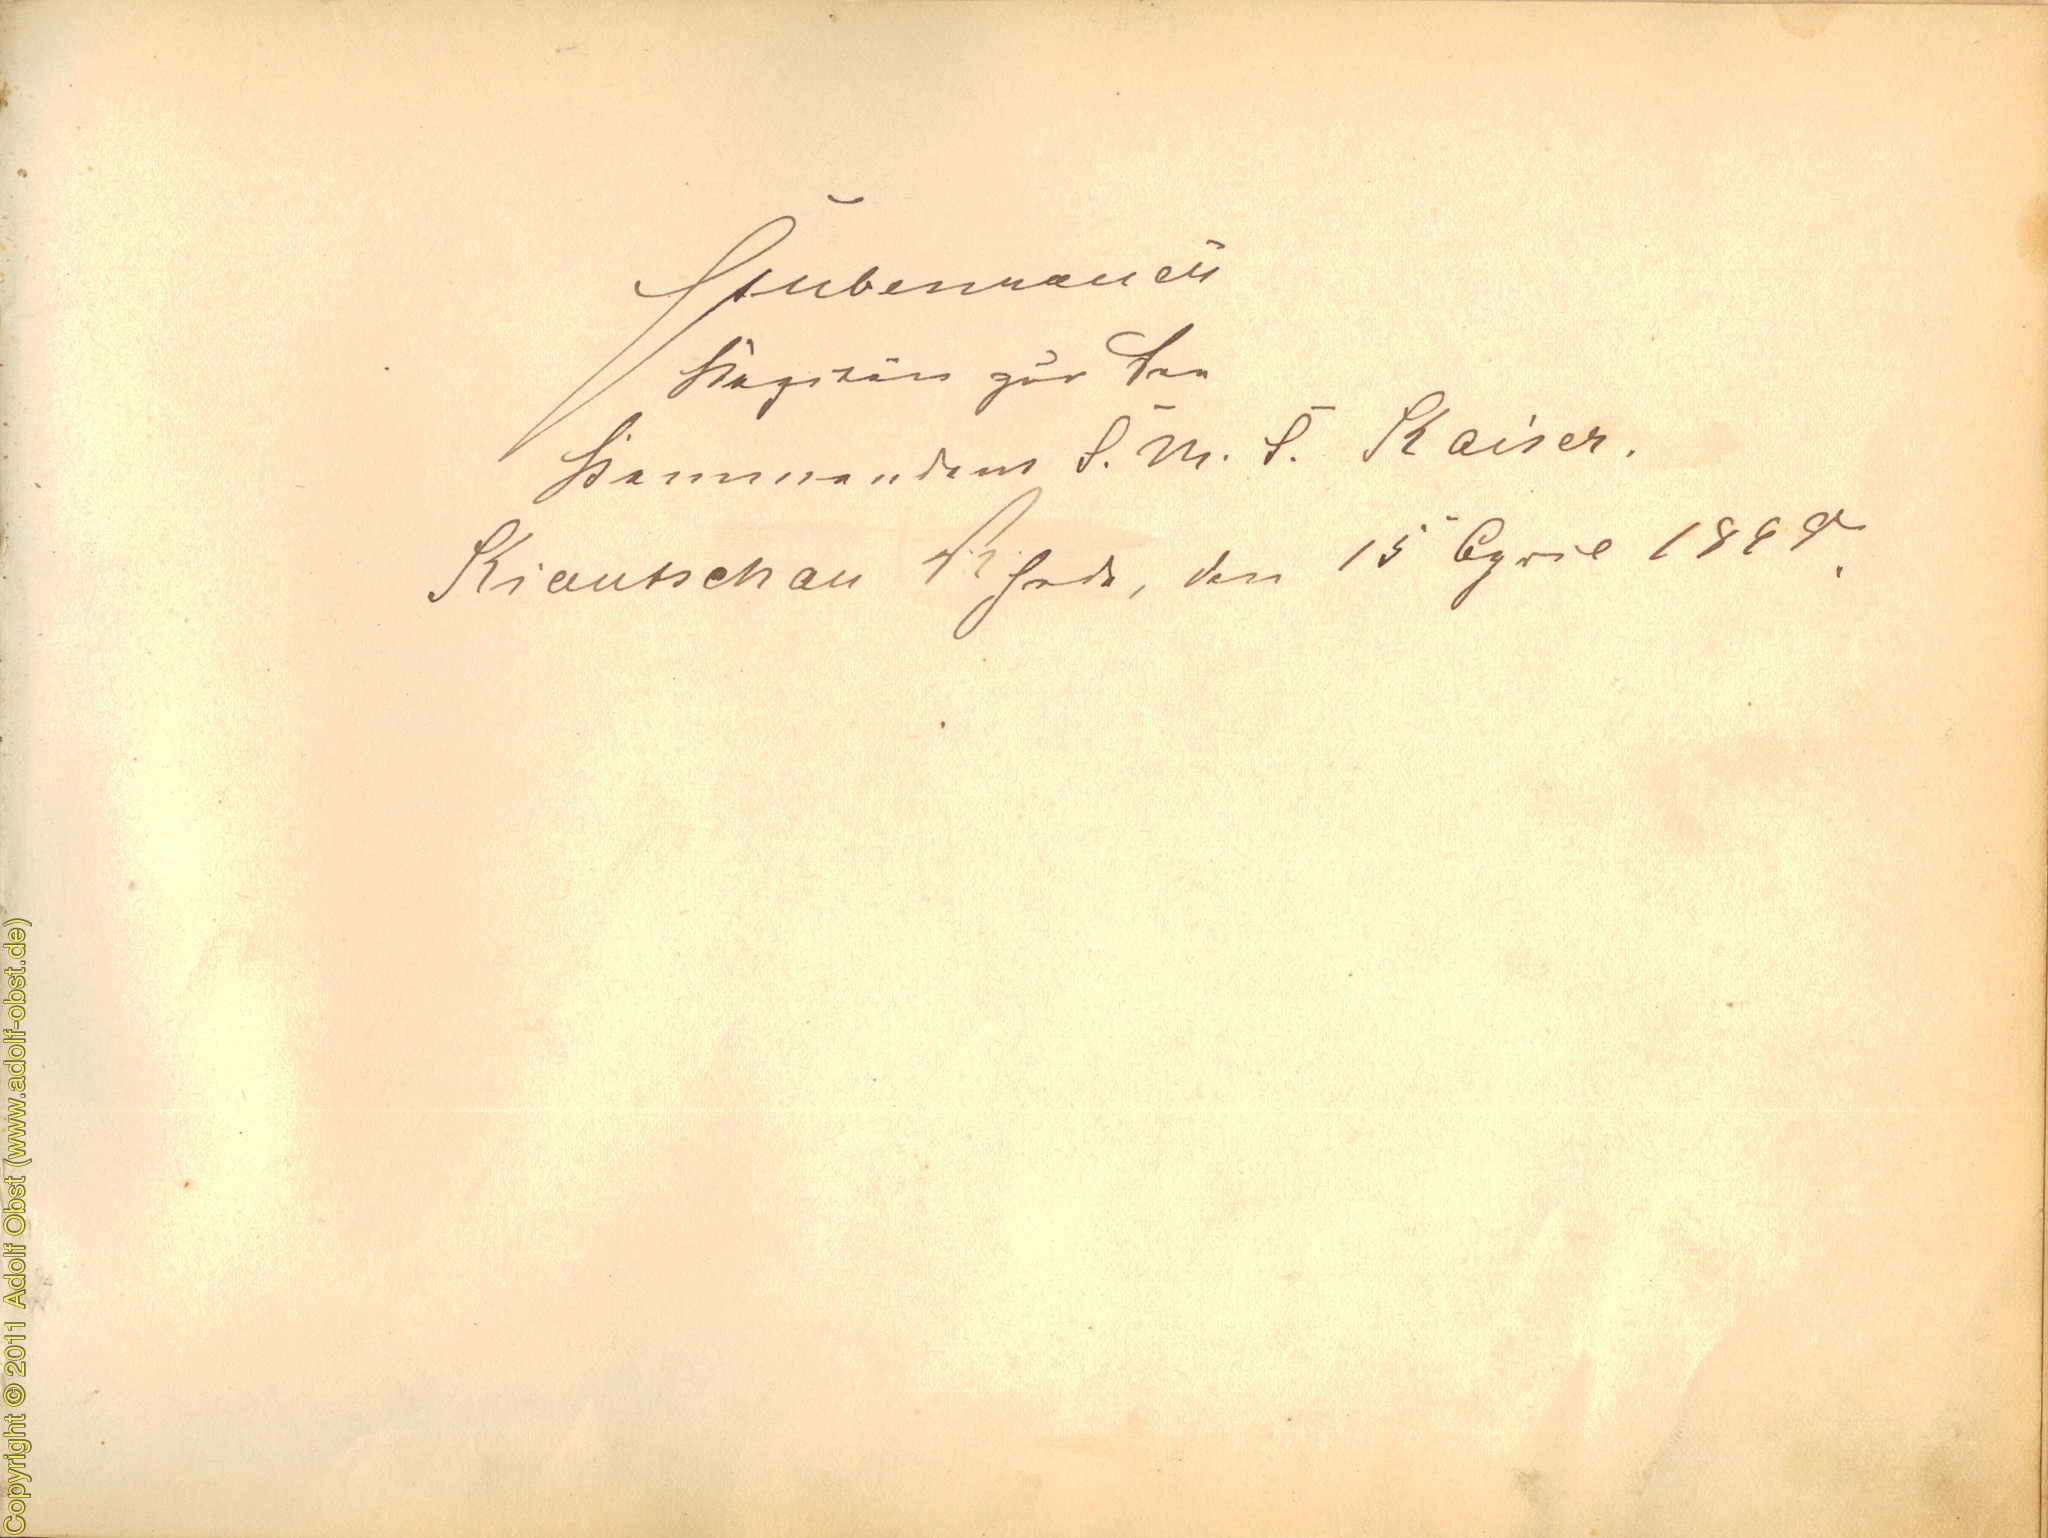 Stubenrauch
Kapitän zur See
Kommandant S. M. S. Kaiser.
Kiautschau Rhede, den 15 April 1899.
Copyright © 2011 Adolf Obst (www.adolf-obst.de)